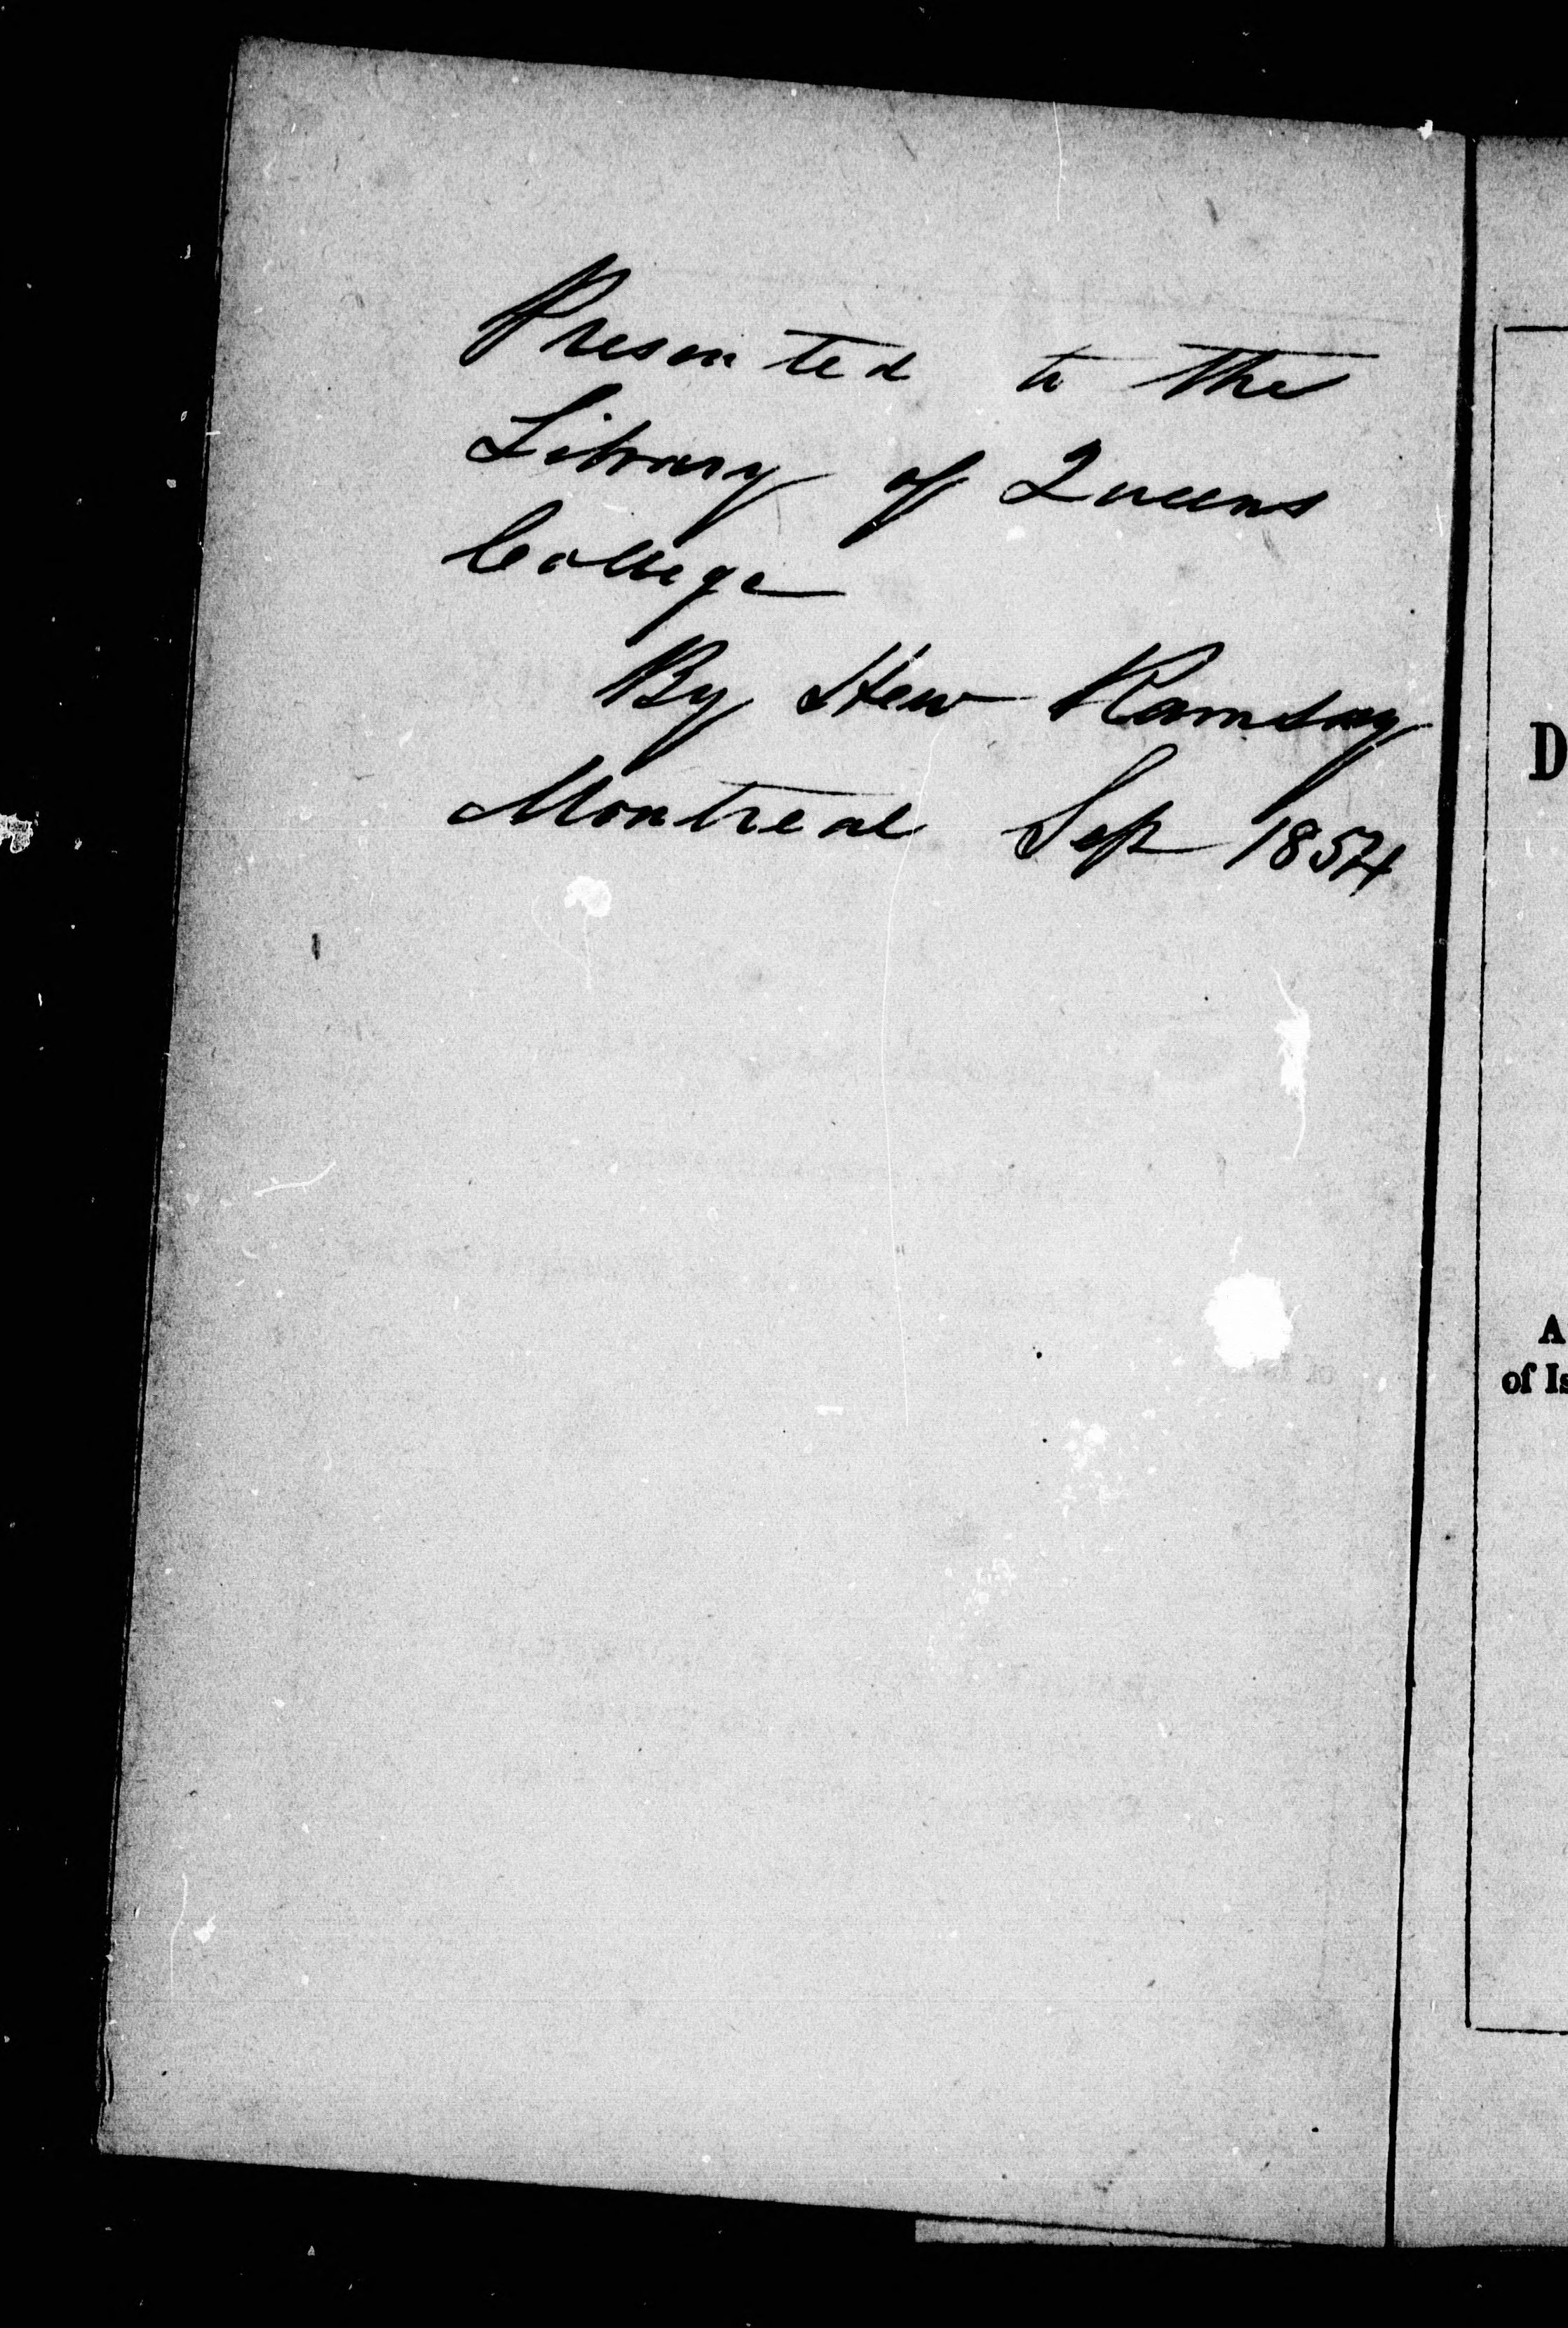 Presented to the
Library of Queens
College
By Hew Ramsay
Montreal Sep 1854
D
A
of Is